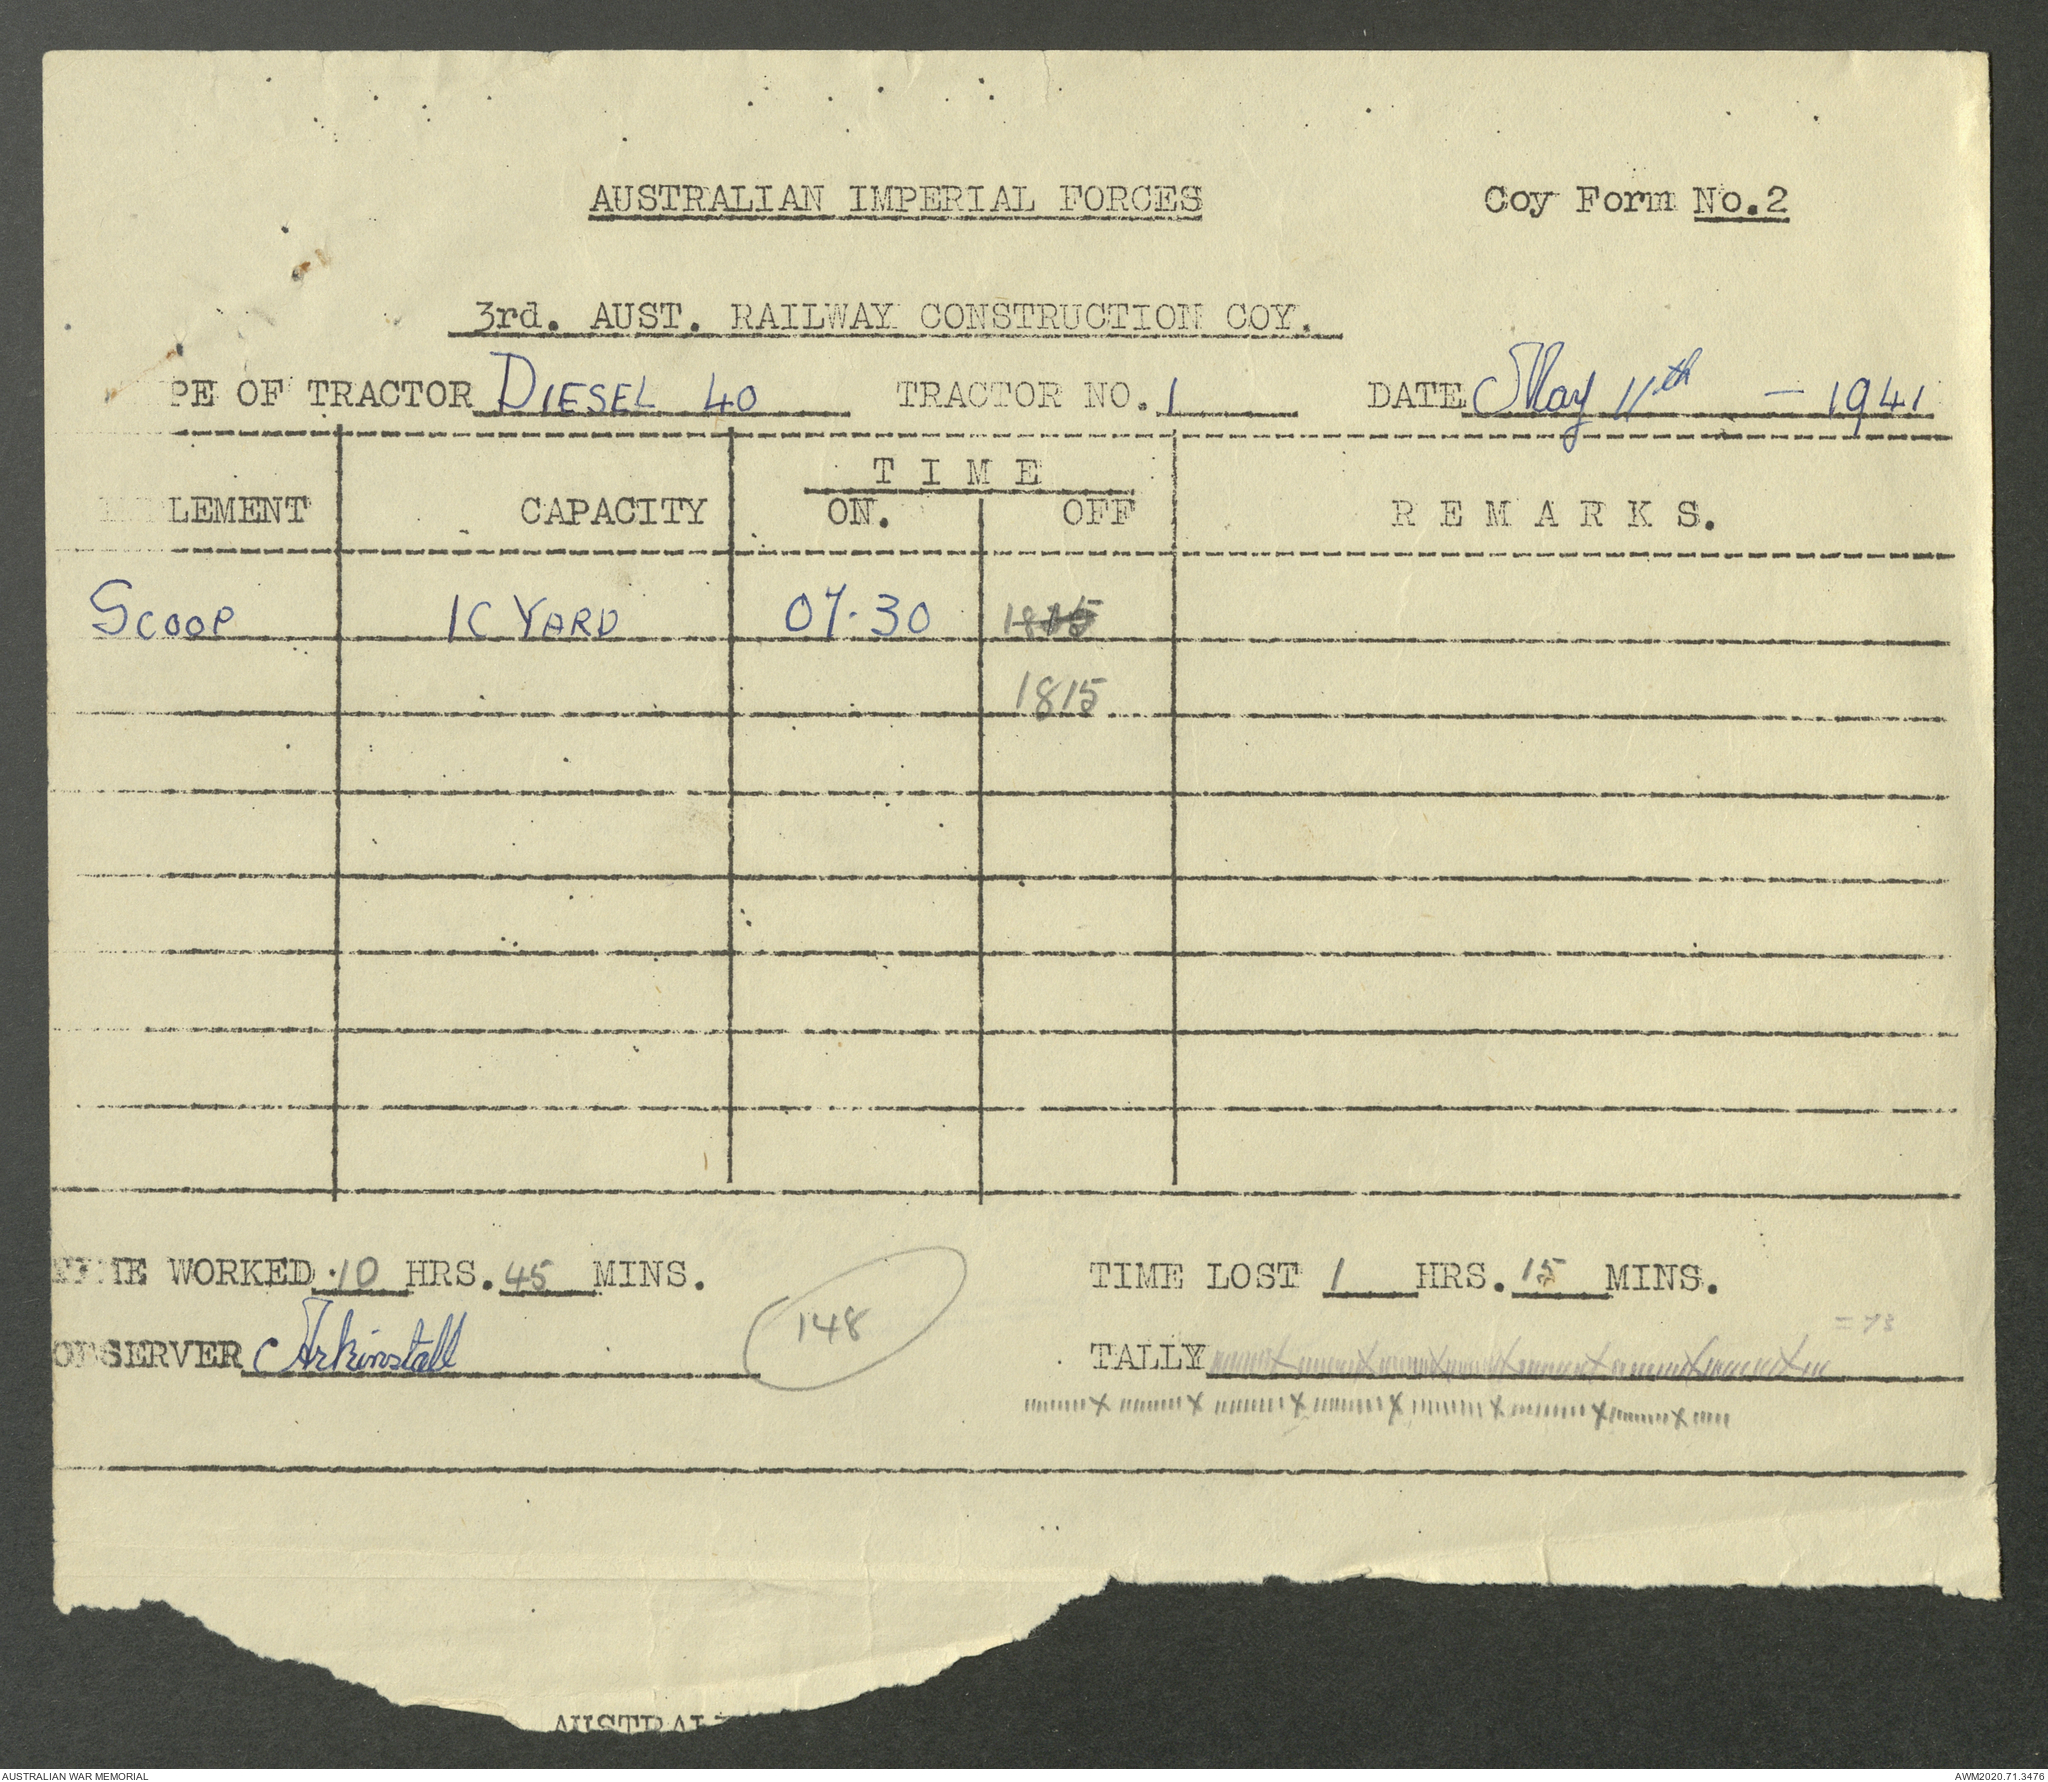 AUSTRALIAN IMPERIAL FORCES Coy Form No.2
3rd. AUST. RAILWAY CONSTRUCTION COY.
PE OF TRACTOR DIESEL 40 TRACTOR NO. 1 DATE May 11th - 1941
T I M E
LEMENT CAPACITY ON. OFF R E M A R K S.
SCOOP 1C YARD 07.30
1815
TIME WORKED 10 HRS. 45 MINS. TIME LOST 1 HRS. 15 MINS.
= 73
OBSERVER Arkinstall 148 TALLY
AUSTRAL
AUSTRALIAN WAR MEMORIAL AWM2020.71.3476